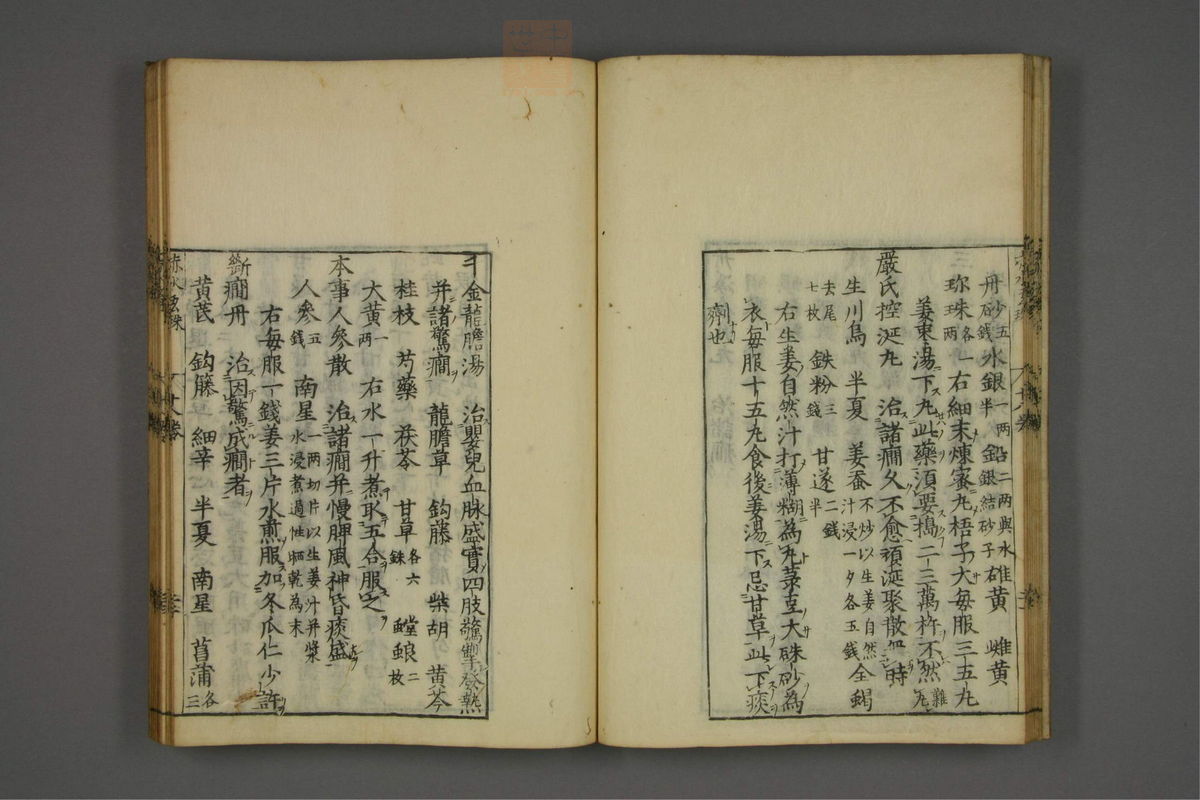 丹砂五錢 水銀一兩半 鉛二兩與水金銀結砂子 雄黃 雌黃
珎珠各一兩 右細末煉蜜丸梧子大每服三五丸
姜棗湯下丸此藥須要搗二三萬杵不然難丸
嚴氏控涎丸 治諸癎久不愈頑涎聚散無時
生川烏 半夏 姜蚕不炒以生姜自然汁浸一夕各五錢 全蝎
去尾七枚 鉄粉三錢 甘遂二錢半
右生姜自然汁打薄糊為丸菉豆大硃砂為
衣每服十五丸食後姜湯下忌甘草此下痰
劑也
千金龍膽湯 治嬰兒血脉盛實四肢驚掣發熱
并諸驚癎 龍膽草 鈎藤 柴胡 黃芩
桂枝 芍藥 茯苓 甘草各六銖 螳蜋二枚
大黃一兩 右水一升煮取五合服之
本事人參散 治諸癎并慢脾風神昏痰盛
人參五錢 南星一兩切片以生姜汁并漿水浸煮過性晒乾為末
右每服一錢姜三片水煎服加冬瓜仁少許
斷癎丹 治因驚成癎者
黃芪 鈎籐 細辛 半夏 南星 菖蒲各三
赤水玄珠